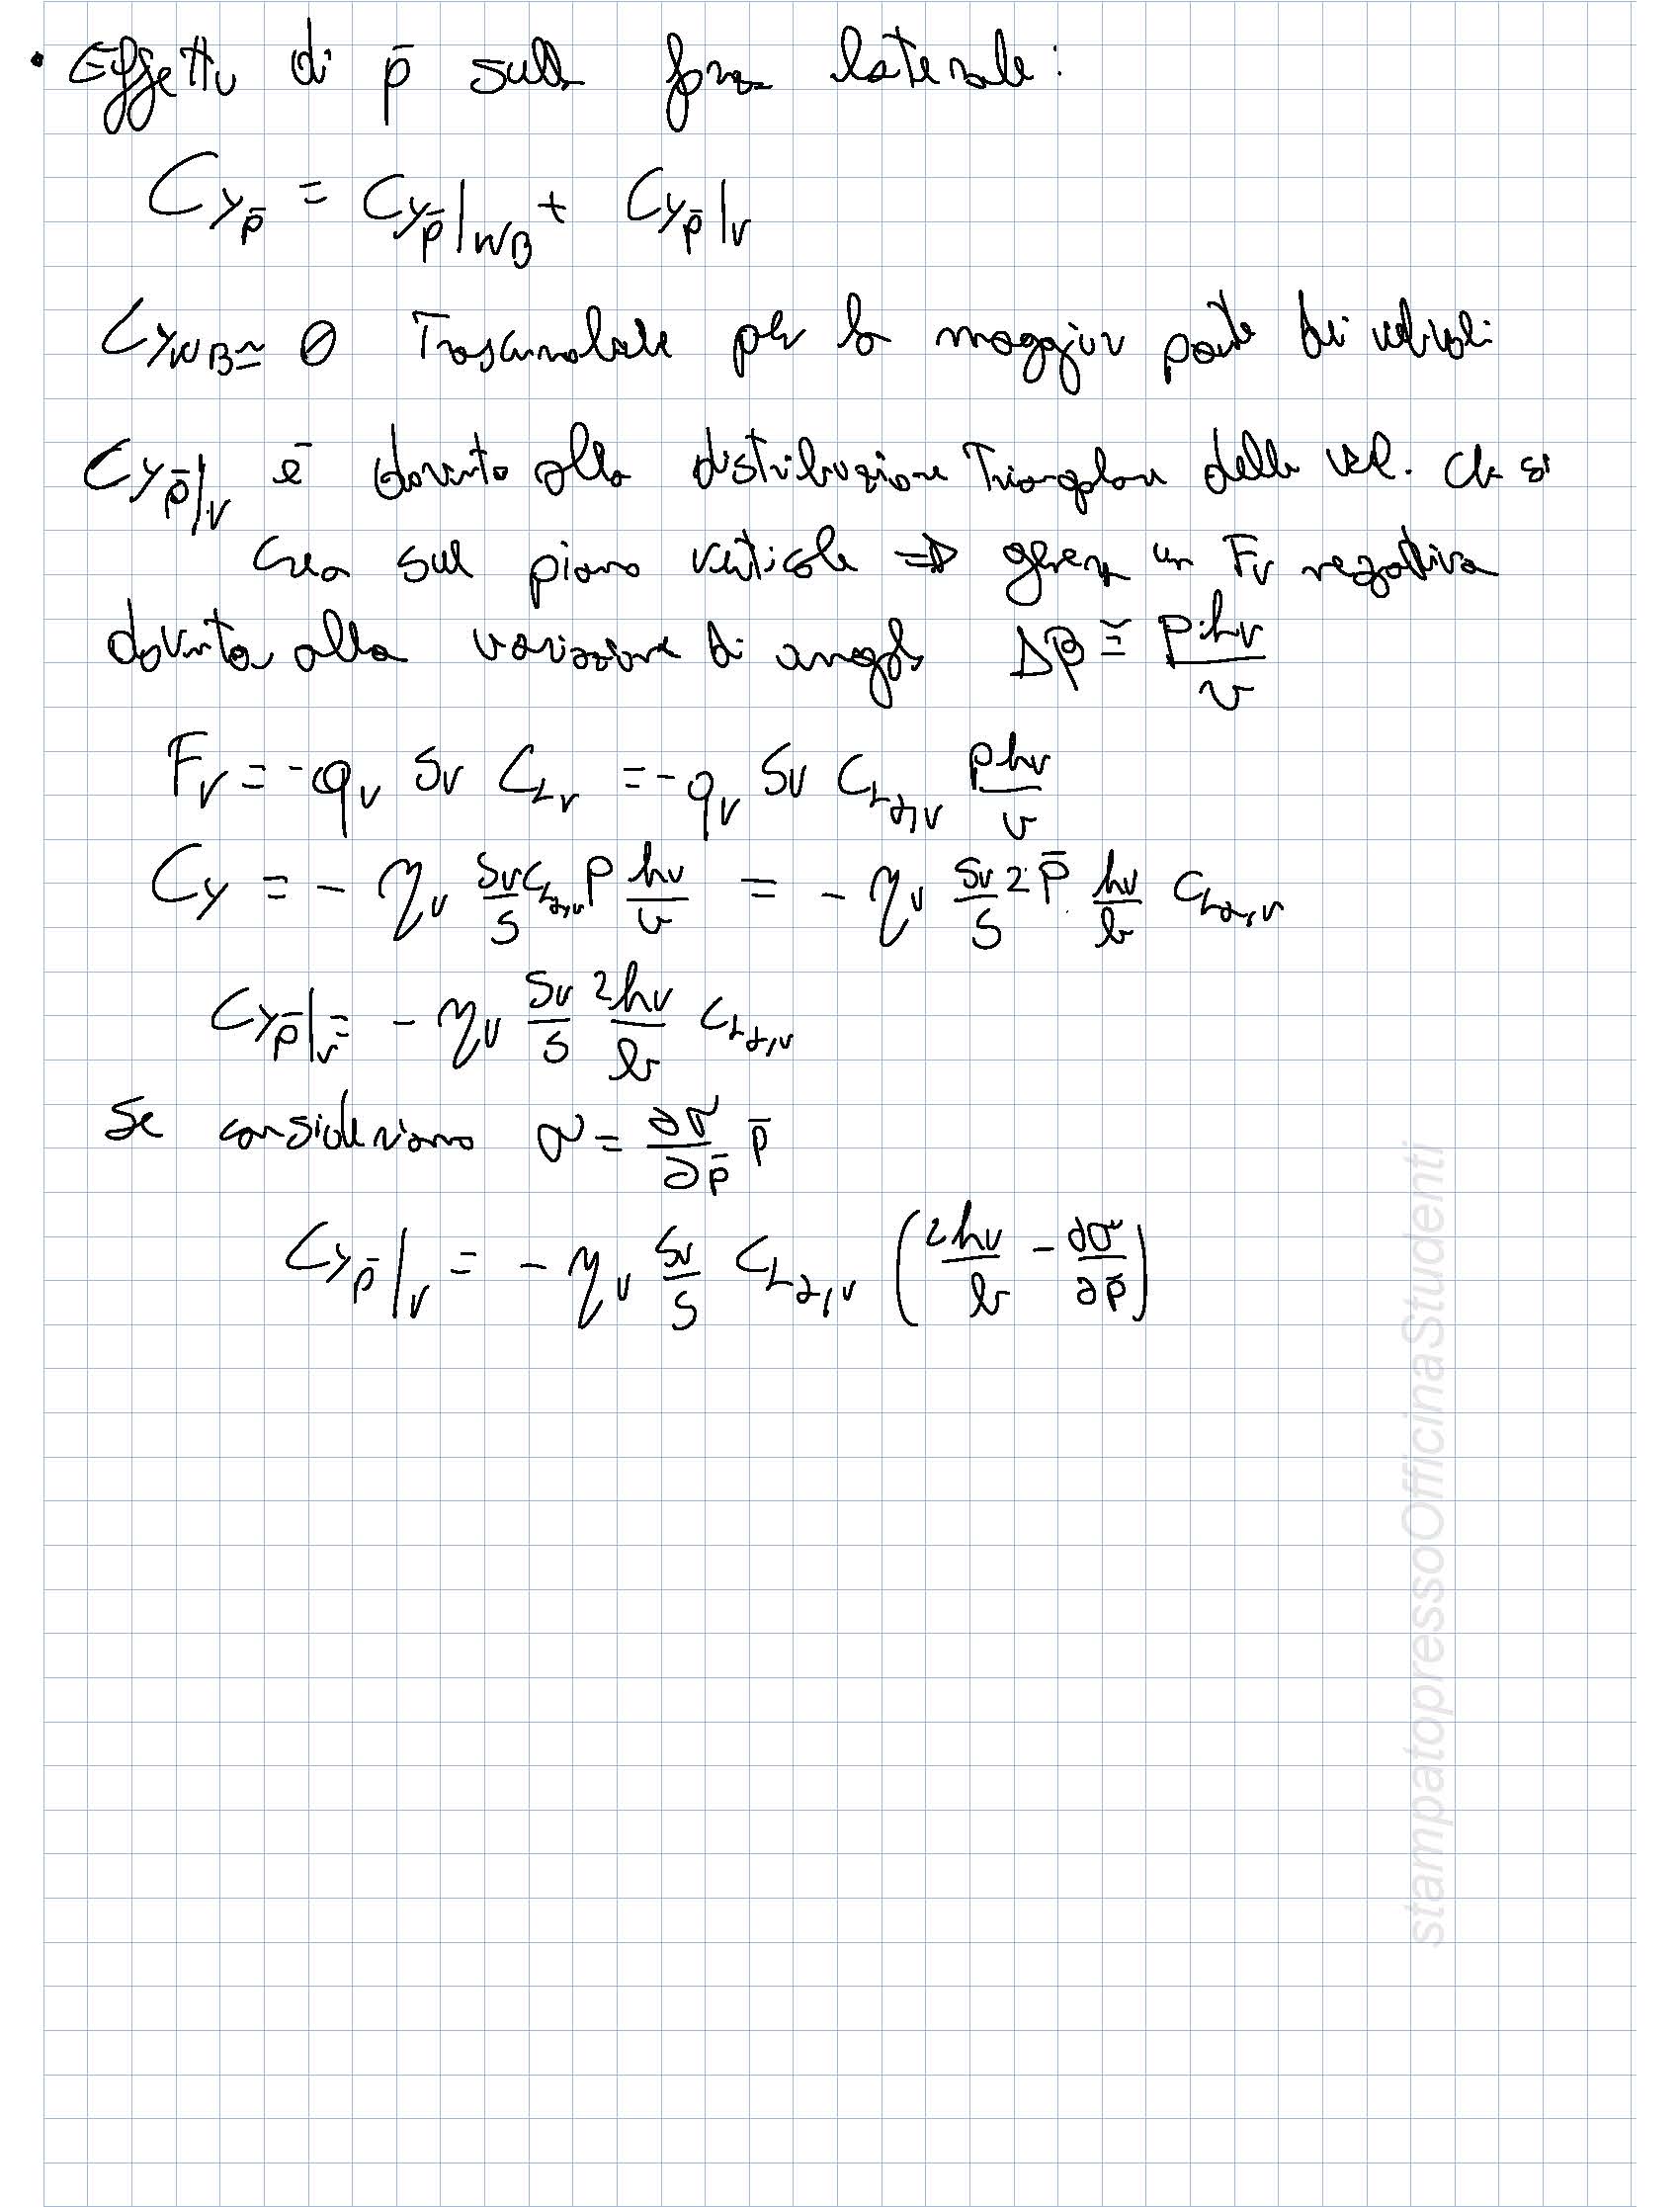 • Effetto di p̄ sulla forza laterale:
C_{Y_p̄} = C_{Y_p̄}|_{WB} + C_{Y_p̄}|_V
C_{Y_{WB}} ≃ 0 Trascurabile per la maggior parte dei velivoli
C_{Y_p̄}|_V è dovuto alla distribuzione Triangolare delle vel. che si
crea sul piano verticale ⇒ genera un F_V negativa
dovuta alla variazione di angolo Δβ ≅ p·h_V / V
F_V = -q_V S_V C_{L_V} = -q_V S_V C_{L_{α,V}} p h_V / V
C_Y = - η_V S_V/S C_{L_{α,V}} p h_V/V = - η_V S_V/S 2 p̄ h_V/b C_{L_{α,V}}
C_{Y_p̄}|_V = - η_V S_V/S 2h_V/b C_{L_{α,V}}
Se consideriamo σ = ∂σ/∂p̄ p̄
C_{Y_p̄}|_V = - η_V S_V/S C_{L_{α,V}} (2h_V/b - ∂σ/∂p̄)
stampatopressoOfficinaStudenti